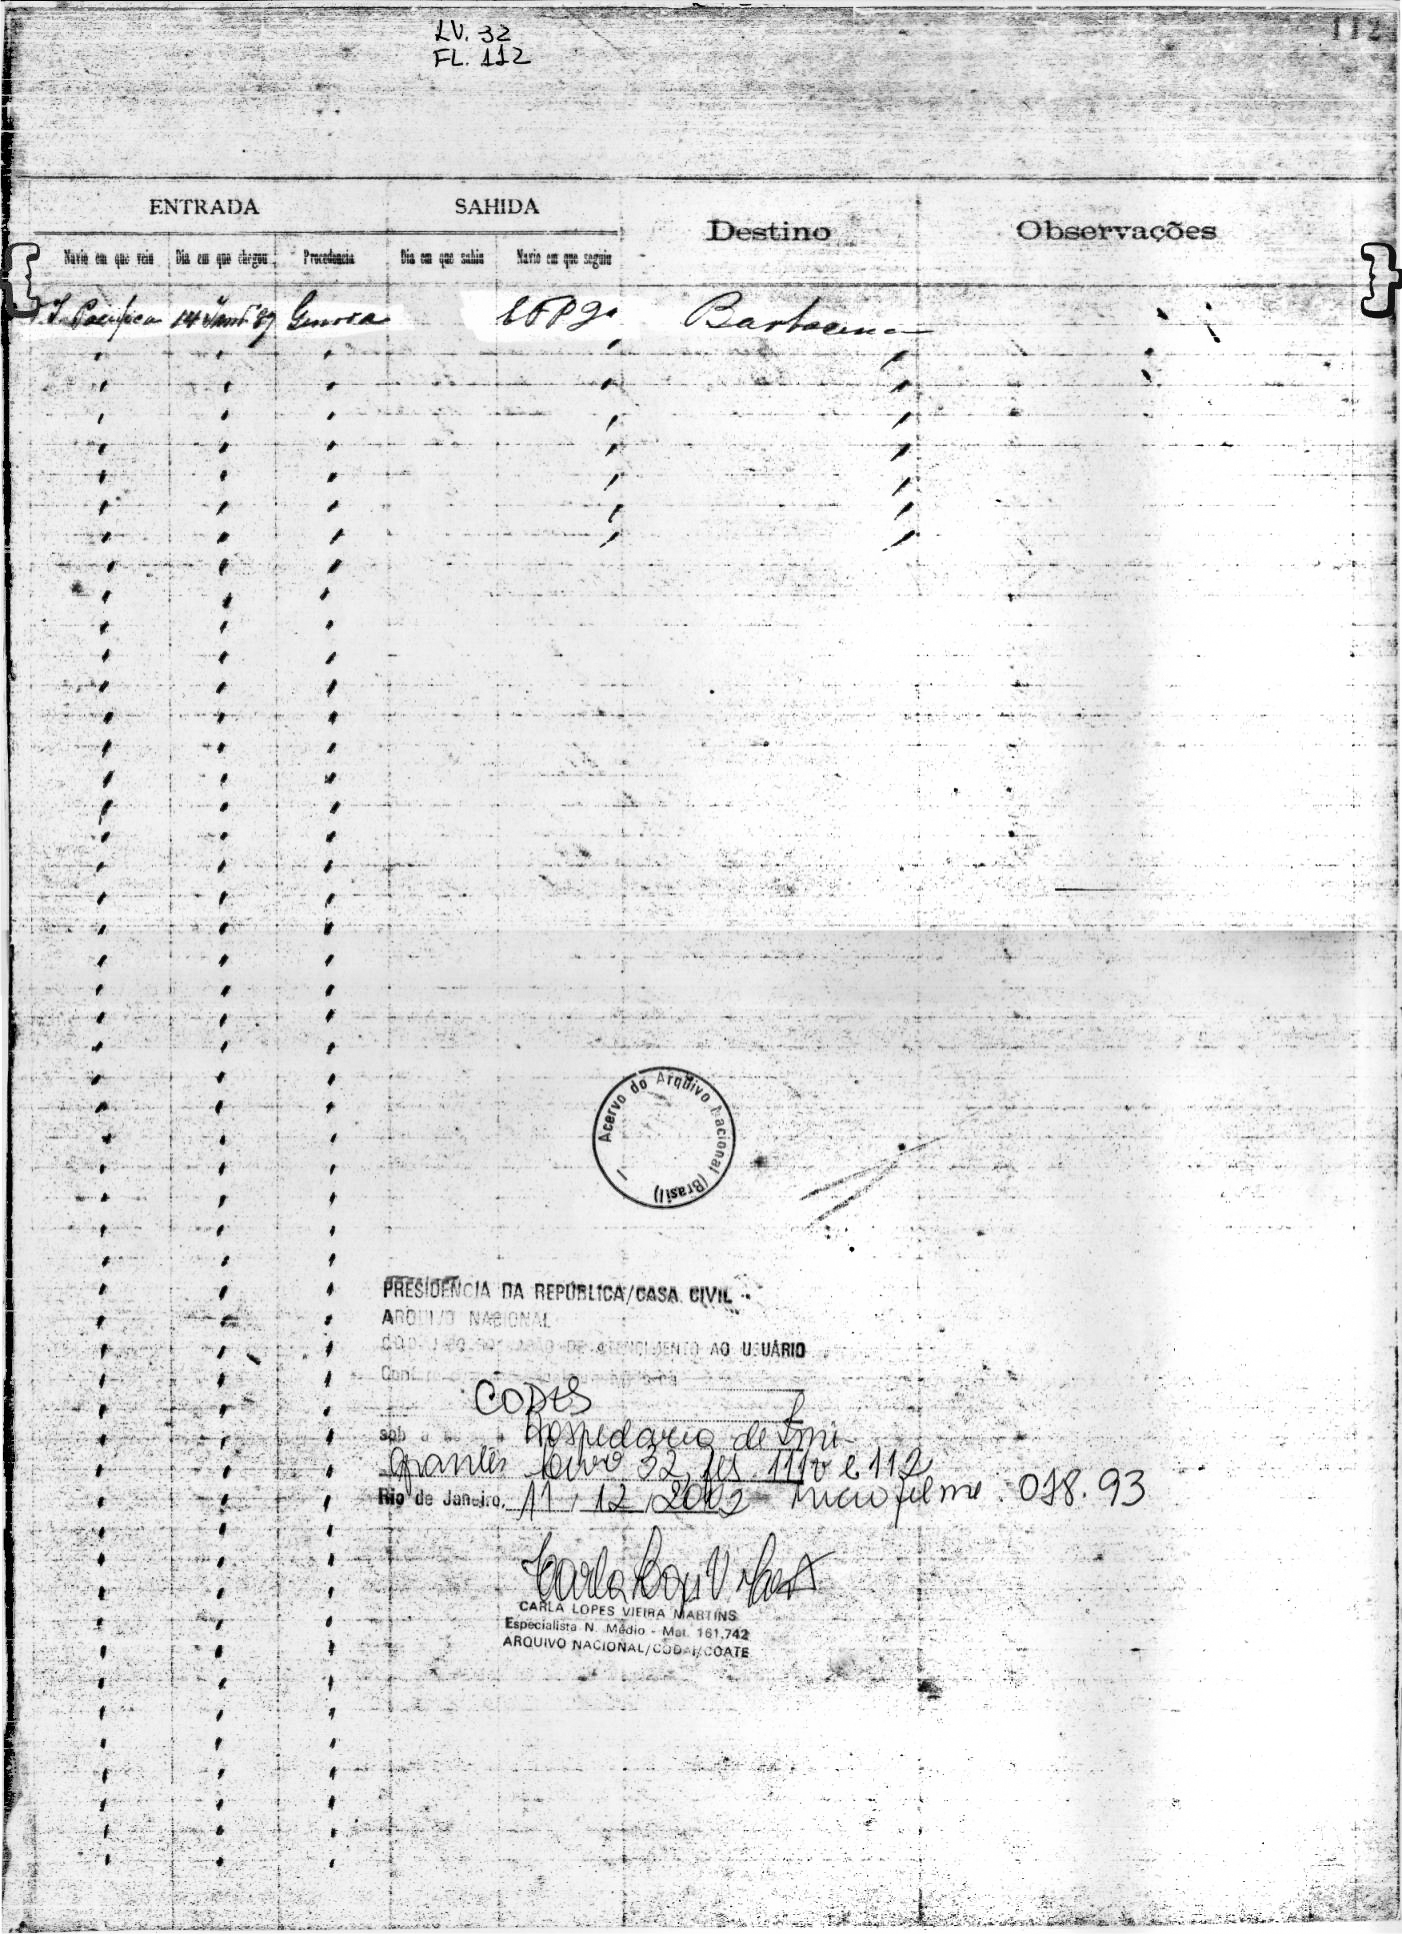 LV. 32
FL. 112
112
ENTRADA SAHIDA Destino Observações
Navio em que veiu Dia em que chegou Procedencia Dia em que sahiu Navio em que seguiu
14 Genova Barbacena
Acervo do Arquivo Nacional (Brasil)
PRESIDÊNCIA DA REPÚBLICA/CASA CIVIL
ARQUIVO NACIONAL
ATENDIMENTO AO USUÁRIO
CODES
sob Hospedaria de Imi-
grantes livro 32, fls. 111v e 112
Rio de Janeiro, 11 / 12 / 2002 microfilme: 018.93
CARLA LOPES VIEIRA MARTINS
Especialista N. Médio - Mat. 161.742
ARQUIVO NACIONAL/CODAI/COATE